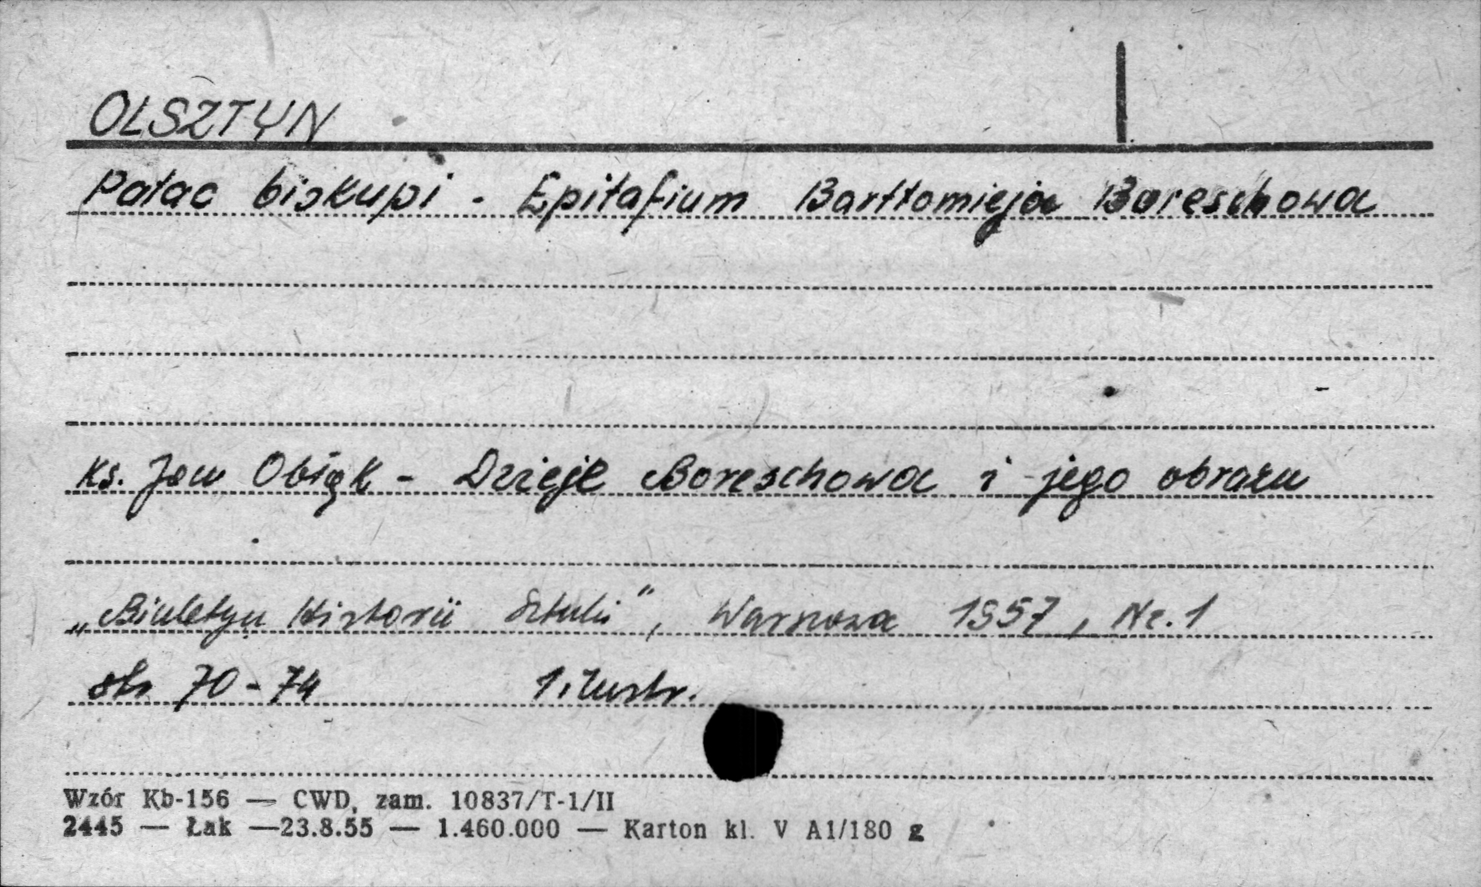 OLSZTYN
Pałac biskupi - Epitafium Barttomieja Boreschowa
ks. Jan Obłąk - Dzieje Boreschowa i jego obrazu
„Biuletyn Historii Sztuki", Warszawa 1957, Nr. 1
str. 70-74 1 ilustr.
Wzór Kb-156 — CWD, zam. 10837/T-1/II
2445 — Łak —23.8.55 — 1.460.000 — Karton kl. V A1/180 g